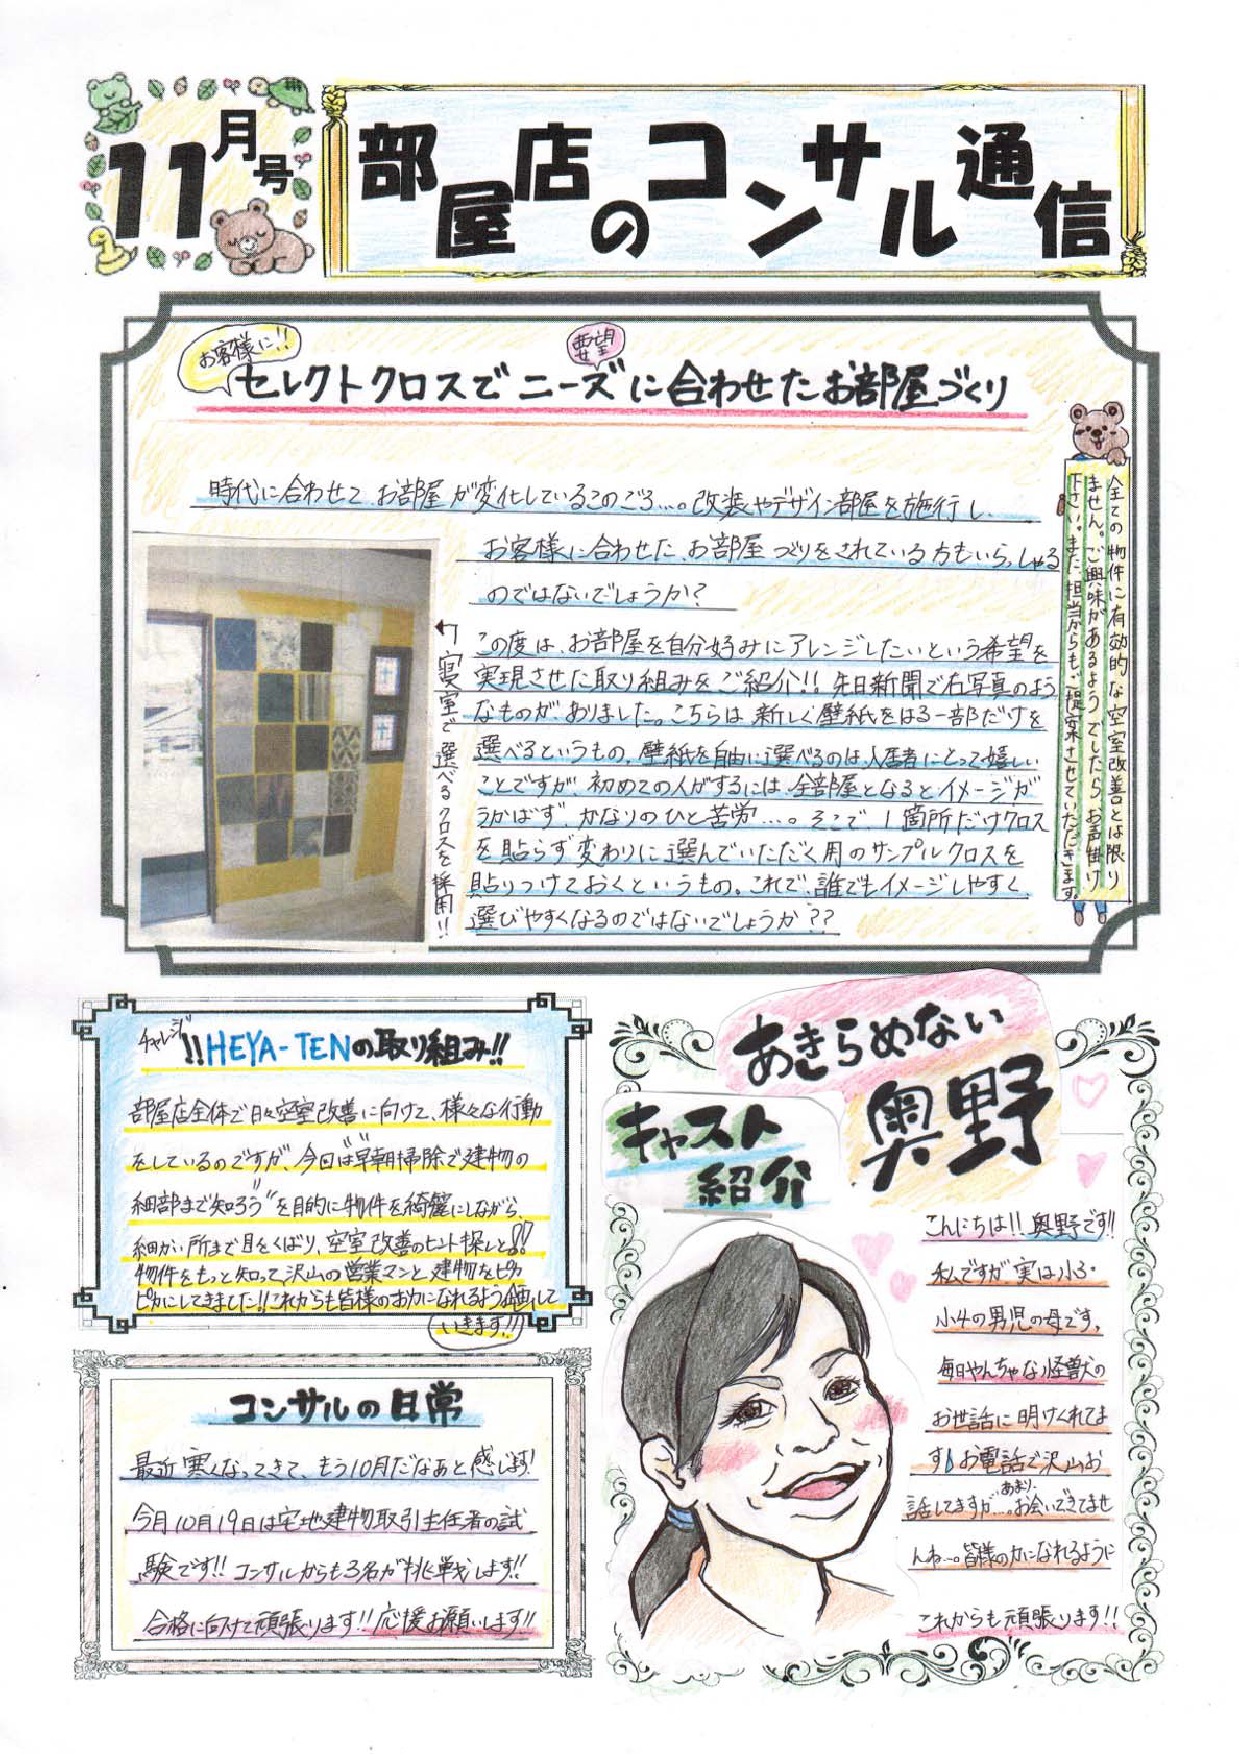 11月号
部屋店のコンサル通信
お客様に!!
要望
セレクトクロスでニーズに合わせたお部屋づくり
時代に合わせて、お部屋が変化しているこのごろ…。改装やデザイン部屋を施行し、
お客様に合わせた、お部屋づくりをされている方もいらっしゃる
のではないでしょうか?
この度は、お部屋を自分好みにアレンジしたいという希望を
実現させた取り組みをご紹介!! 先日新聞で右写真のよう
なものが、ありました。こちらは新しく壁紙をはる一部だけを
選べるというもの。壁紙を自由に選べるのは、入居者にとって嬉しい
ことですが、初めての人がするには、全部屋となるとイメージが
うかばず、かなりのひと苦労…。そこで、1箇所だけクロス
を貼らず変わりに選んでいただく用のサンプルクロスを
貼りつけておくというもの。これで、誰でもイメージしやすく
選びやすくなるのではないでしょうか??
寝室で選べるクロスを採用!!
全ての物件に有効的な空室改善とは限り
ません。ご興味があるようでしたら、お声掛け
下さい。また、担当からもご提案させていただきます。
チャレンジ!!HEYA-TENの取り組み!!
部屋店全体で日々空室改善に向けて、様々な行動
をしているのですが、今回は“早朝掃除で建物の
細部まで知ろう”を目的に物件を綺麗にしながら、
細かい所まで目をくばり、空室改善のヒント探しと!!
物件をもっと知って沢山の営業マンと建物をピカ
ピカにしてきました!!これからも皆様のお力になれるよう企画して
いきます!!
コンサルの日常
最近寒くなってきて、もう10月だなあと感じます!
今月10月19日は宅地建物取引主任者の試
験です!! コンサルからも3名が挑戦します!!
合格に向けて頑張ります!!応援お願いします!!
あきらめない
奥野
キャスト
紹介
こんにちは!!奥野です!!
私ですが実は小2・
小4の男児の母です。
毎日やんちゃな怪獣の
お世話に明けくれてま
す お電話で沢山お
話してますが…。あまりお会いできてませ
んね…。皆様の力になれるように
これからも頑張ります!!